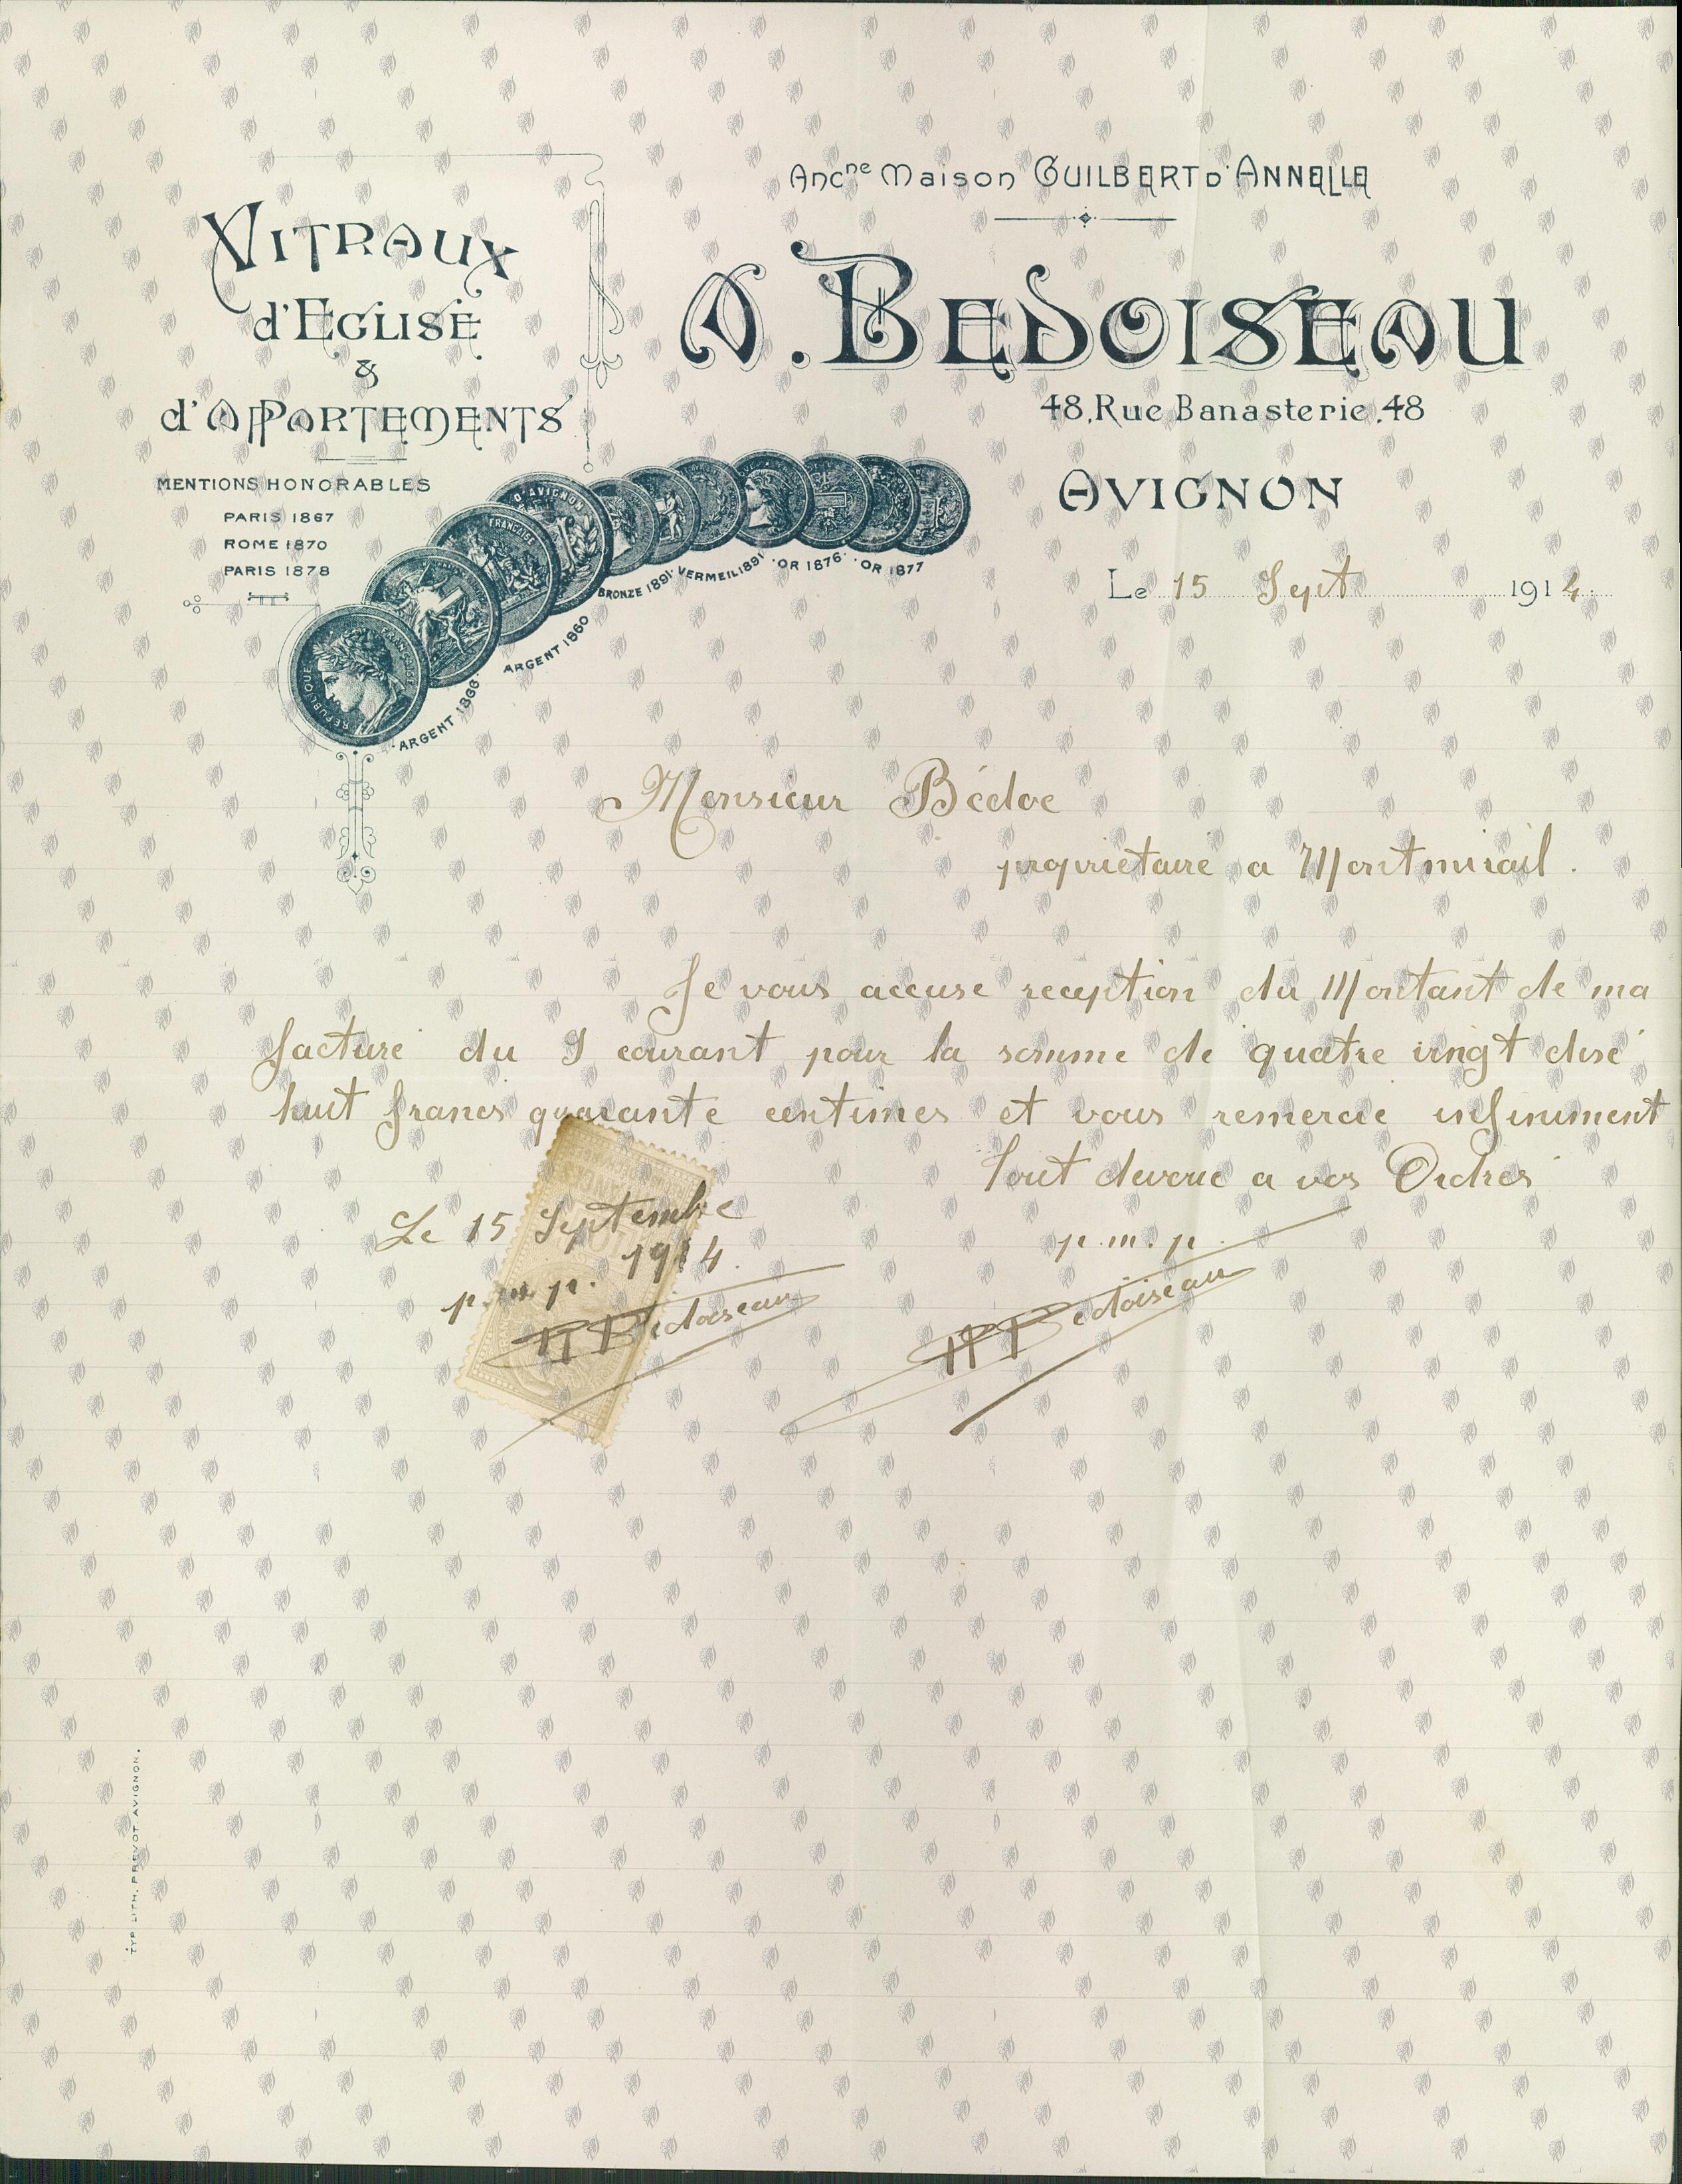 Ancne Maison GUILBERT D'ANNELLE
VITRAUX
d'EGLISE
&
d'APPARTEMENTS
A. BEDOISEAU
48, Rue Banasterie, 48
AVIGNON
MENTIONS HONORABLES
PARIS 1867
ROME 1870
PARIS 1878
D'AVIGNON
FRANÇAISE
REPUBLIQUE FRANÇAISE
ARGENT 1866
ARGENT 1860
BRONZE 1891
VERMEIL 1891
OR 1876
OR 1877
Le 15 Sept 1914
Monsieur Bédoe
proprietaire a Montmirail.
Je vous accuse reception du Montant de ma
facture du 9 courant pour la somme de quatre vingt dise
huit francs quarante centimes et vous remercie infiniment
Tout devoué a vos Ordres
Le 15 Septembre
1914.
p. m. p.
Bedoiseau
p. m. p.
Bedoiseau
TYP. LITH. PREVOT. AVIGNON.